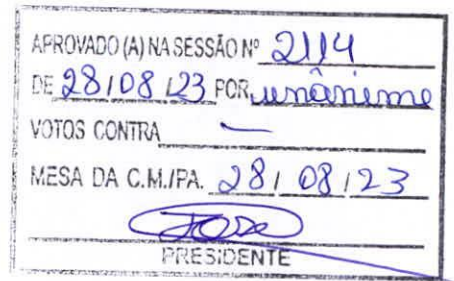 APROVADO (A) NA SESSÃO Nº 2114
DE 28/08/23 POR unânime
VOTOS CONTRA —
MESA DA C.M./PA. 28/08/23
PRESIDENTE